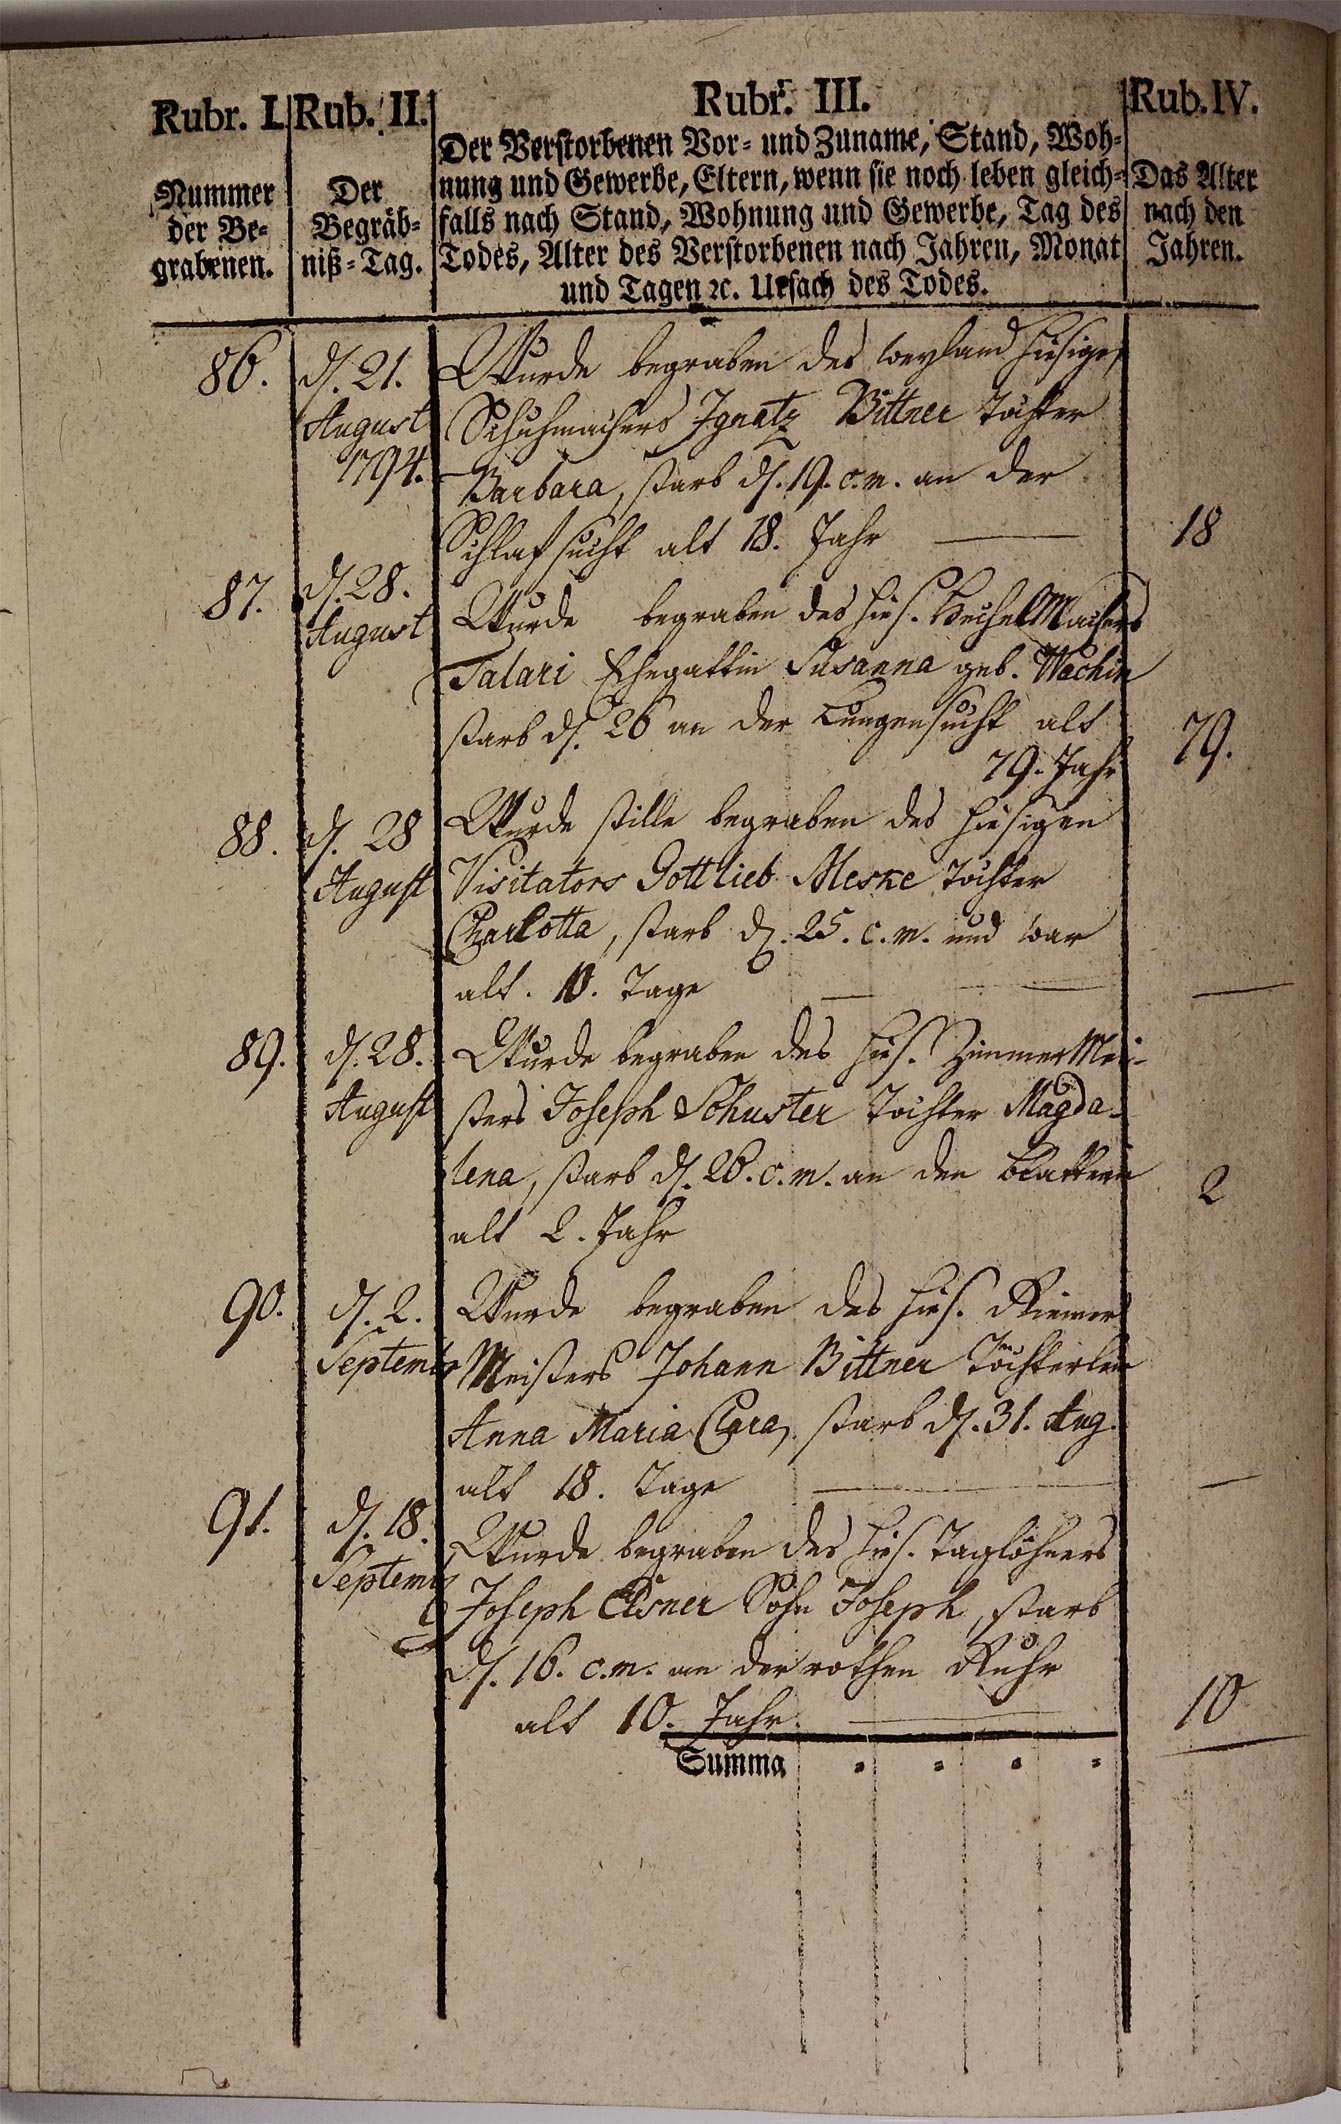 Rubr. I.
Nummer
der Be-
grabenen.
Rub. II.
Der
Begräb-
niß-Tag.
Rubr. III.
Der Verstorbenen Vor- und Zuname, Stand, Woh-
nung und Gewerbe, Eltern, wenn sie noch leben gleich-
falls nach Stand, Wohnung und Gewerbe, Tag des
Todes, Alter des Verstorbenen nach Jahren, Monat
und Tagen ꝛc. Ursach des Todes.
Rub. IV.
Das Alter
nach den
Jahren.
86.
d. 21.
August
1794.
Wurde begraben des weyland hiesigen
Schuhmachers Ignatz Bittner Tochter
Barbara, starb d. 19. c.m. an der
Schlafsucht alt 18. Jahr
18
87.
d. 28.
August
Wurde begraben des hies. HechelMachers
Talari Ehegattin Susanna geb. Wachin
starb d. 26 an der Lungensucht alt
79. Jahr
79.
88.
d. 28
August
Wurde stille begraben des hiesigen
Visitators Gottlieb Meske Tochter
Charlotta, starb d. 25. c.m. und war
alt. 10. Tage
89.
d. 28.
August
Wurde begraben des hies. ZimmerMei-
sters Joseph Schuster Tochter Magda-
lena, starb d. 26. c.m. an den Blattern
alt 2. Jahr
2
90.
d. 2.
Septembr
Wurde begraben des hies. Riemer
Meisters Johann Bittner Töchterlein
Anna Maria Clara, starb d. 31. Aug.
alt 18. Tage
91.
d. 18.
Septembr
Wurde begraben des hies. Taglöhners
Joseph Elsner Sohn Joseph, starb
d. 16. c.m. an der rothen Ruhr
alt 10. Jahr
10
Summa